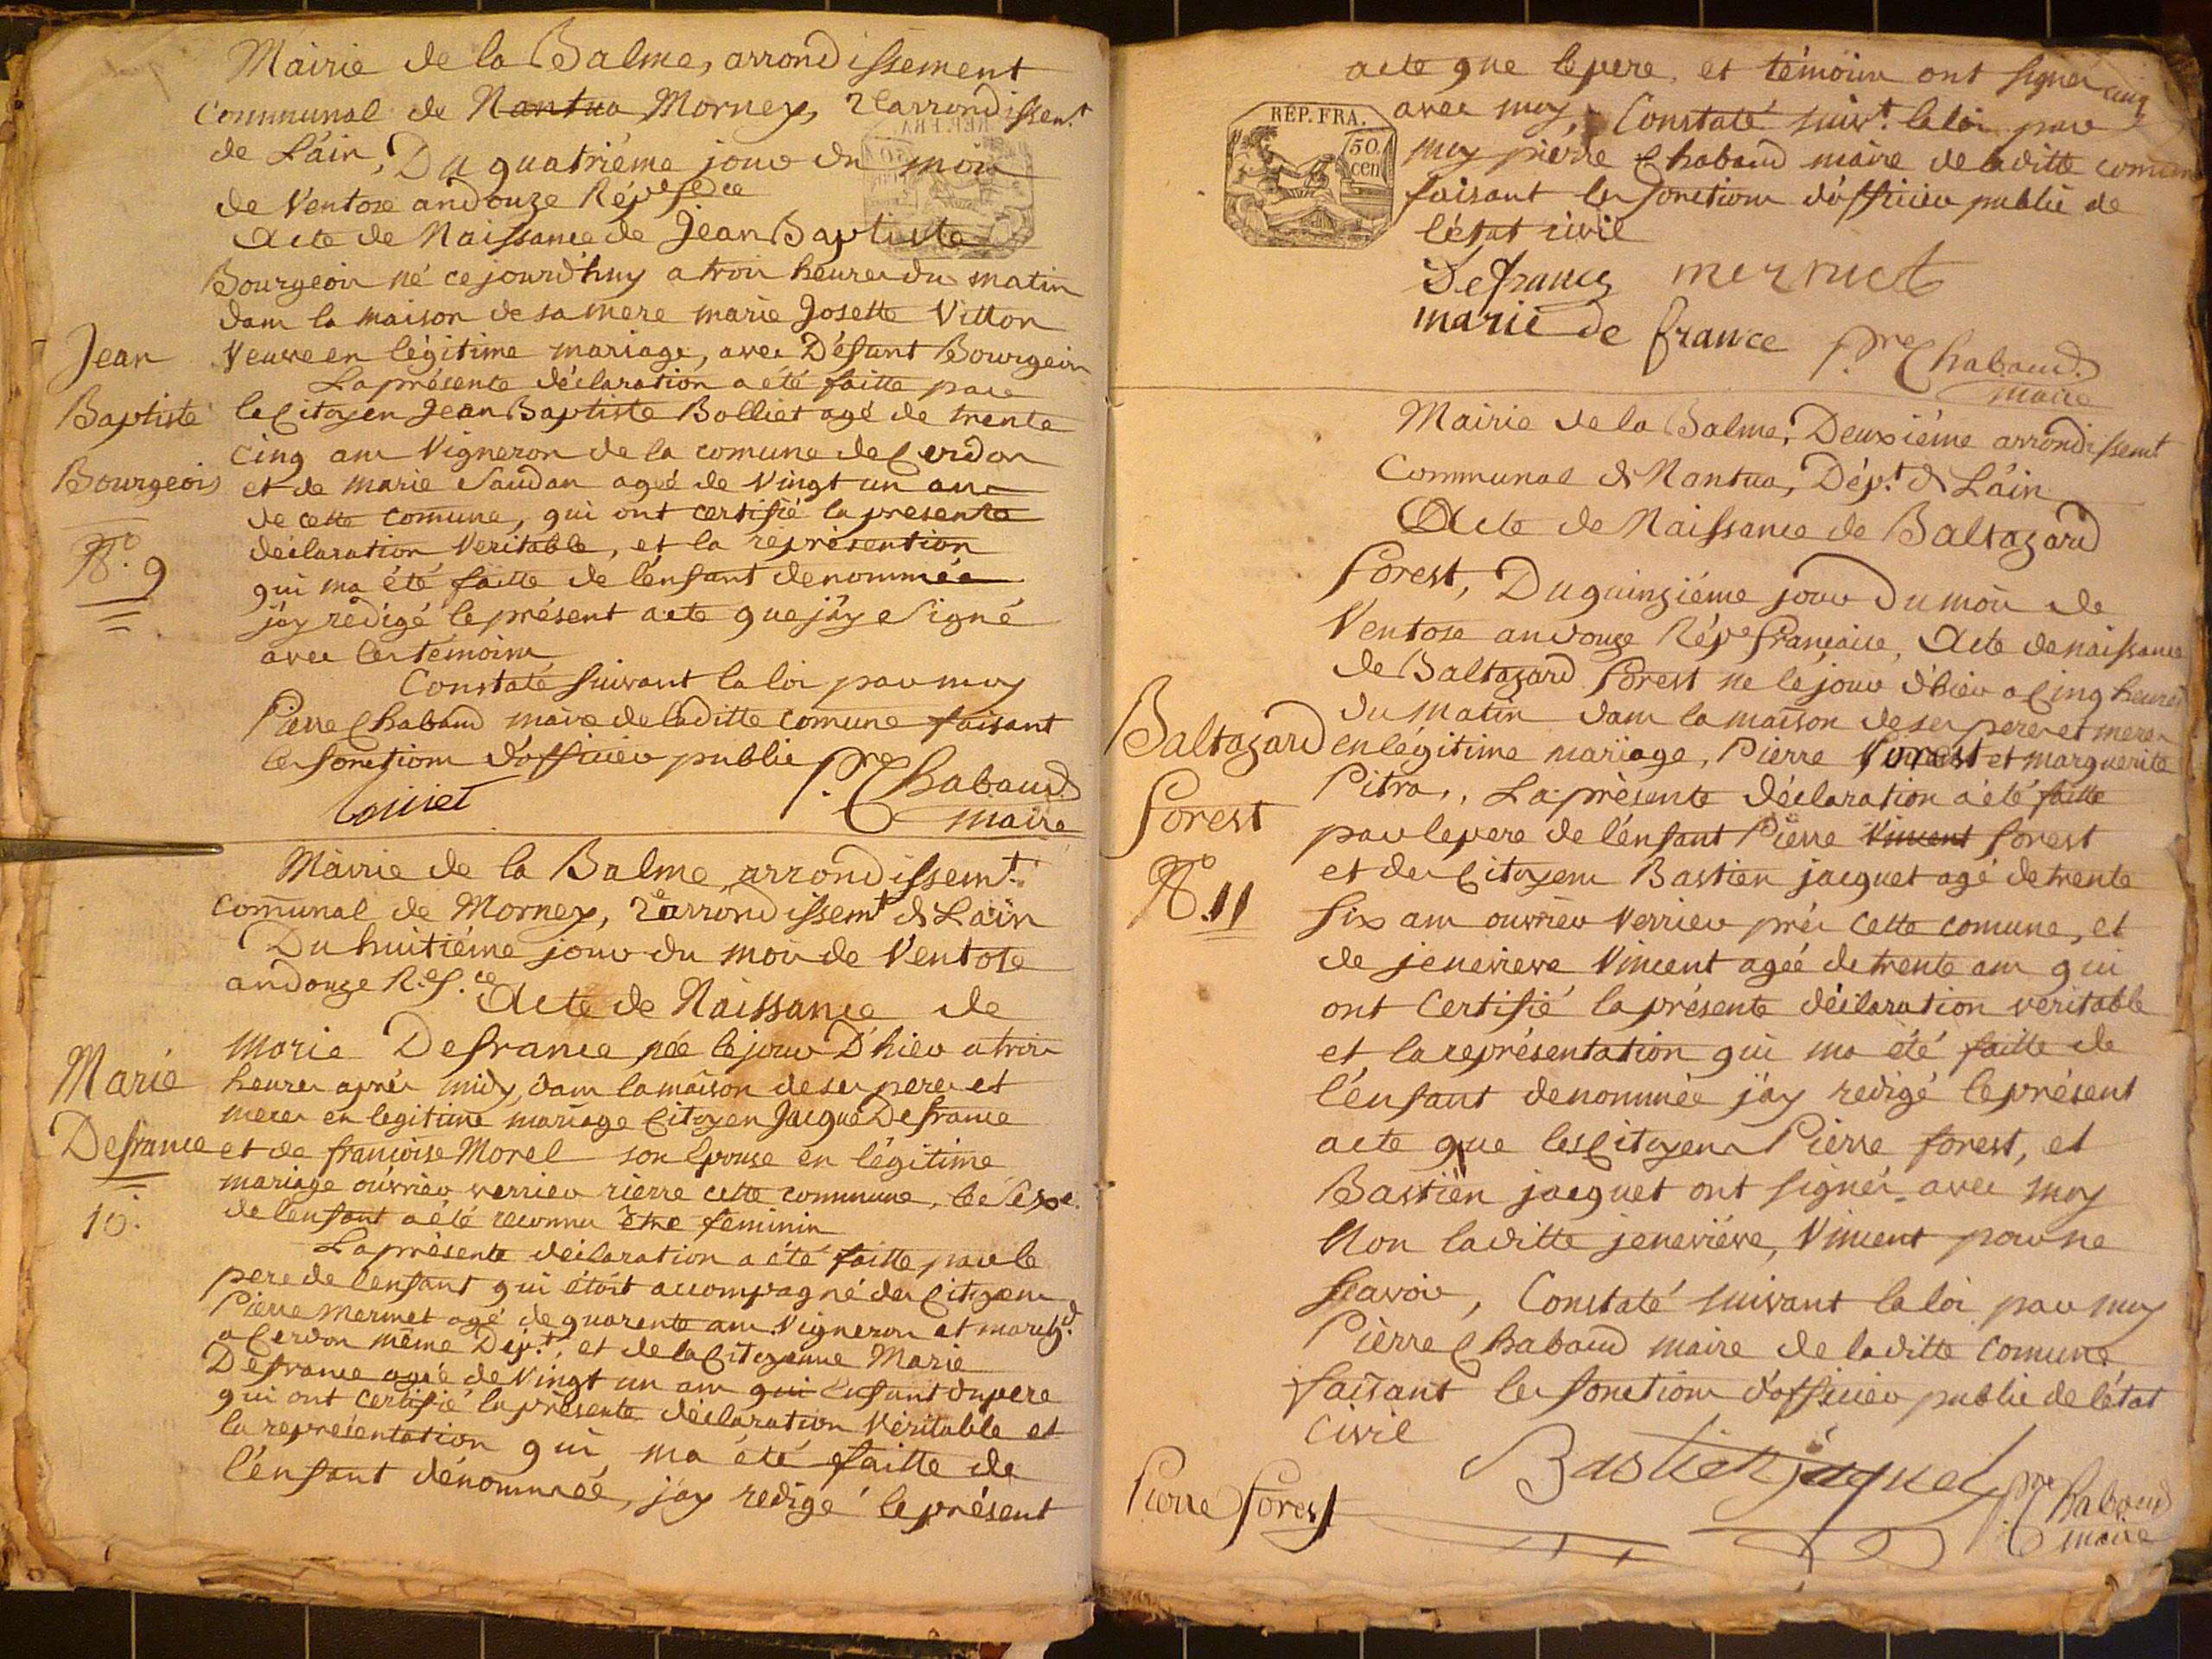 Mairie de la Balme, arrondissement
Communal de Nantua Mornex, 2e arrondissemt
de L'ain, Du quatriéme jour du mois
de Ventose an douze Répe fce
Acte de Naissance de Jean Baptiste
Bourgeois né ce jourd'huy a trois heures du matin
dans la maison de sa mere marie Josette Vitton
Veuve en légitime mariage, avec Défunt Bourgeois
La présente déclaration a été faitte par
le Citoyen Jean Baptiste Bolliet agé de trente
Cinq ans Vigneron de la comune de Cerdon
et de marie Saudan agée de Vingt un ans
de cette comune, qui ont certifié la presente
déclaration Veritable, et la représention
qui ma été faitte de l'enfant denommée
j'ay redigé le présent acte que j'ay Signé
avec les témoins
Constaté suivant la loi par moy
Pierre Chabaud maire de laditte comune faisant
les fonctions d'officier public
Pre Chabaud
maire
Jean
Baptiste
Bourgeois
No. 9
Mairie de la Balme arrondissemt.
Comunal de Mornex, 2e arrondissemt de Lain
Du huitiéme jour du mois de Ventose
an douze R.e f.ce Acte de Naissance de
Marie Defrance née le jour D'hier a trois
heures aprés midy, dans la maison de ses peres et
meres en legitime mariage Citoyen Jacque Defrance
et de francoise Morel son Epouse en légitime
mariage ouvrier verrier rierre cette commune, le Sexe
de l'enfant a été reconnu être feminin
La présente déclaration a été faitte par le
pere de l'enfant qui étoit accompagné des Citoyens
Pierre mermet agé de quarente ans Vigneron et march.d
a Cerdon même Dép.t, et de la Citoyenne Marie
Defrance agée de Vingt un ans qui Enfant du pere
qui ont certifié la présente déclaration Véritable et
la représentation qui ma été faitte de
l'enfant dénommée, j'ay redigé le présent
Marie
Defrance
10.
acte que le pere et témoins ont signés
avec moy, Constaté suiv.t la loi par
moy pierre Chabaud maire de laditte comune
faisant les fonctions d'officier public de
l'état civil
REP. FRA.
50
cen
Defrance mermet
marie de france Pre Chabaud
maire
Mairie de la Balme, Deuxiéme arrondissemt
Communal de Nantua, Dép.t de L'ain
Acte de Naissance de Baltazard
Forest, Du quinziéme jour du mois de
Ventose an douze Répe francaise, Acte de naissance
de Baltazard Forest né le jour d'hier a Cinq heures
du matin dans la maison de ses peres et meres
en légitime mariage, Pierre Forest et marguerite
Pitra, La présente déclaration a été faitte
par le pere de l'enfant Pierre Vincent forest
et des Citoyens Bastien jacquet agé de trente
six ans ouvrier Verrier prés cette comune, et
de jenevieve Vincent agée de trente ans qui
ont Certifié la présente déclaration veritable
et la représentation qui ma été faitte de
l'enfant denommée j'ay redigé le présent
acte que les Citoyens Pierre forest, et
Bastien jacquet ont signés avec moy
Non laditte jeneviéve, Vincent pour ne
Scavoir, Constaté suivant la loi par moy
Pierre Chabaud maire de laditte comune
faisant les fonctions d'officier public de l'état
Civil
Bastien jaquet Pre Chabaud
Pierre Forest maire
Baltazard
Forest
No. 11